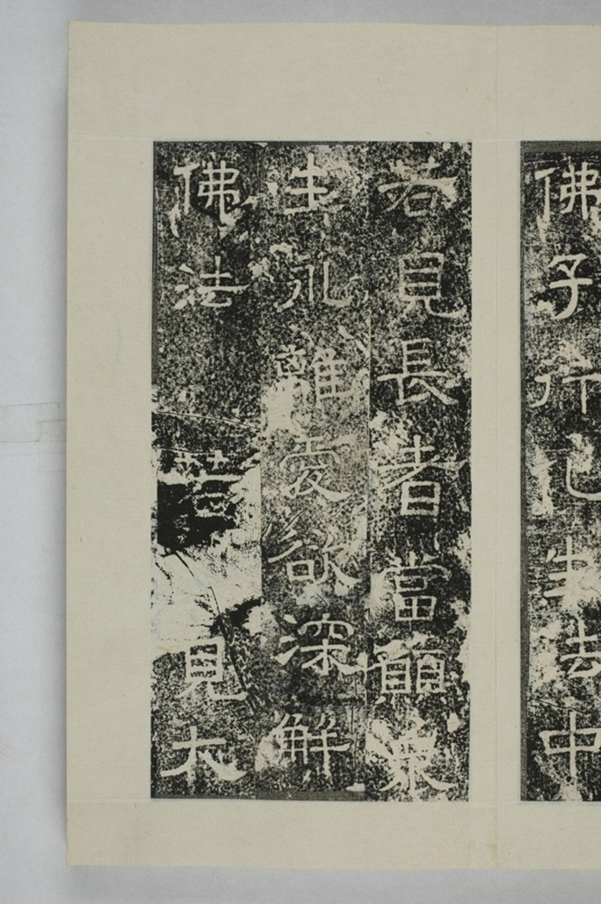 佛子行化生法中
若見長者當願衆
生永離愛欲深解
佛法若見大